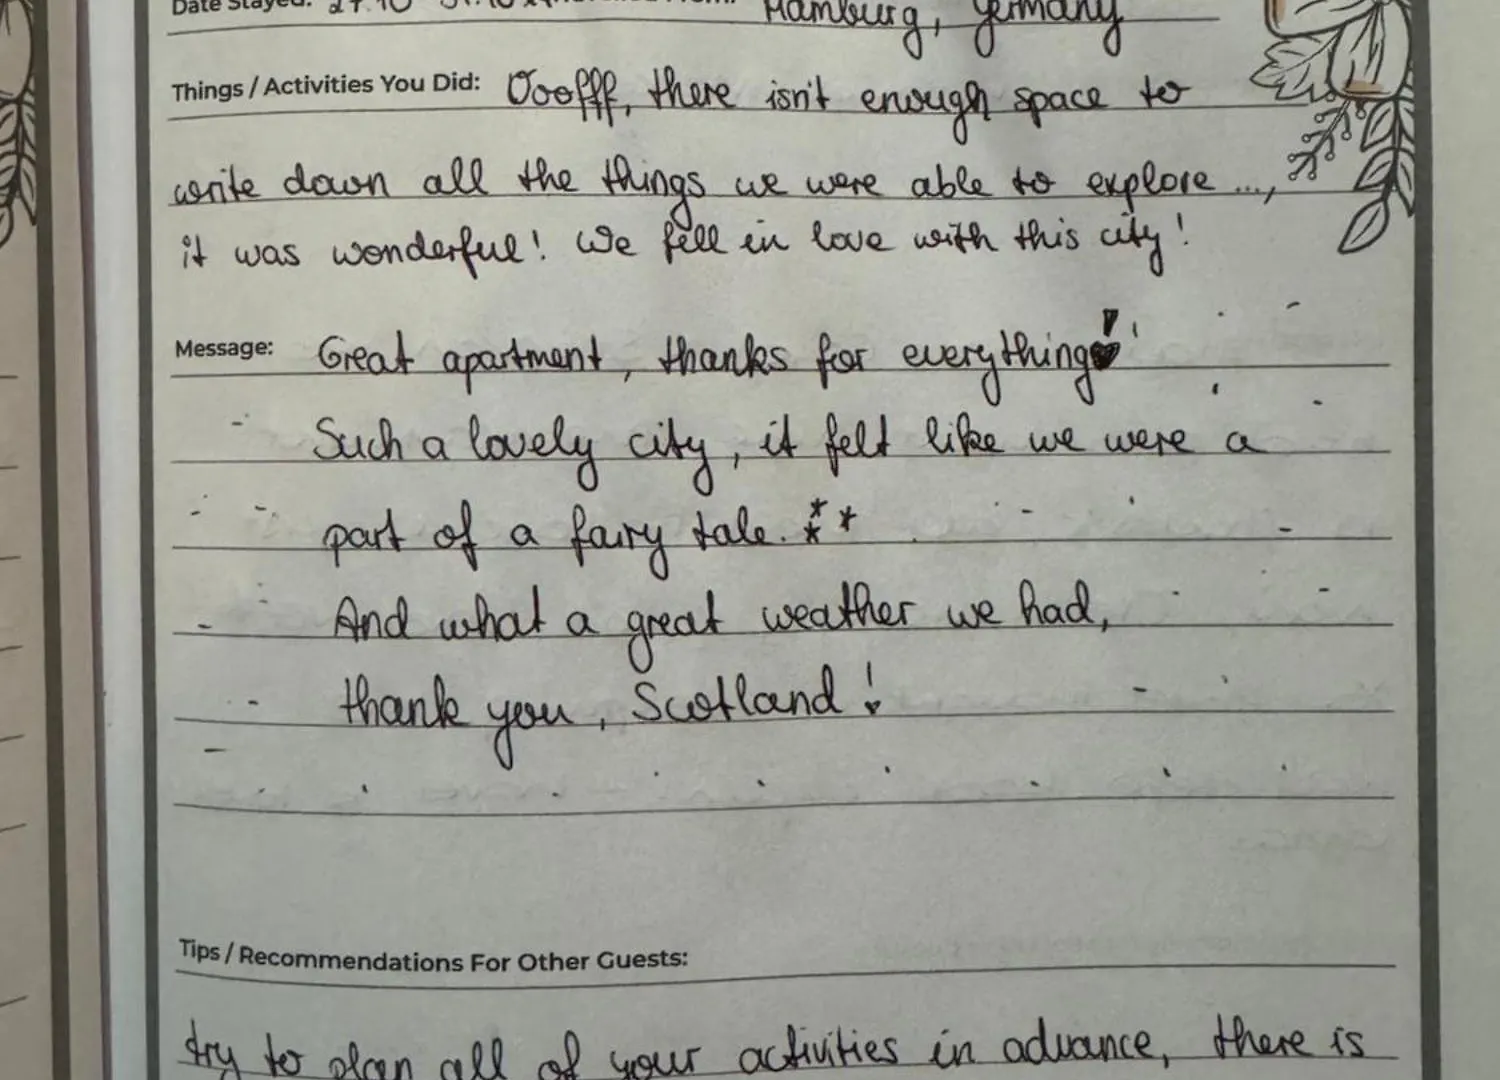 Date Stayed: 27.10 31.10 Hamburg, Germany
Things / Activities You Did: Ooofff, there isn't enough space to
write down all the things we were able to explore ...,
it was wonderful! We fell in love with this city!
Message: Great apartment, thanks for everything!
Such a lovely city, it felt like we were a
part of a fairy tale.
And what a great weather we had,
thank you, Scotland!
Tips / Recommendations For Other Guests:
try to plan all of your activities in advance, there is